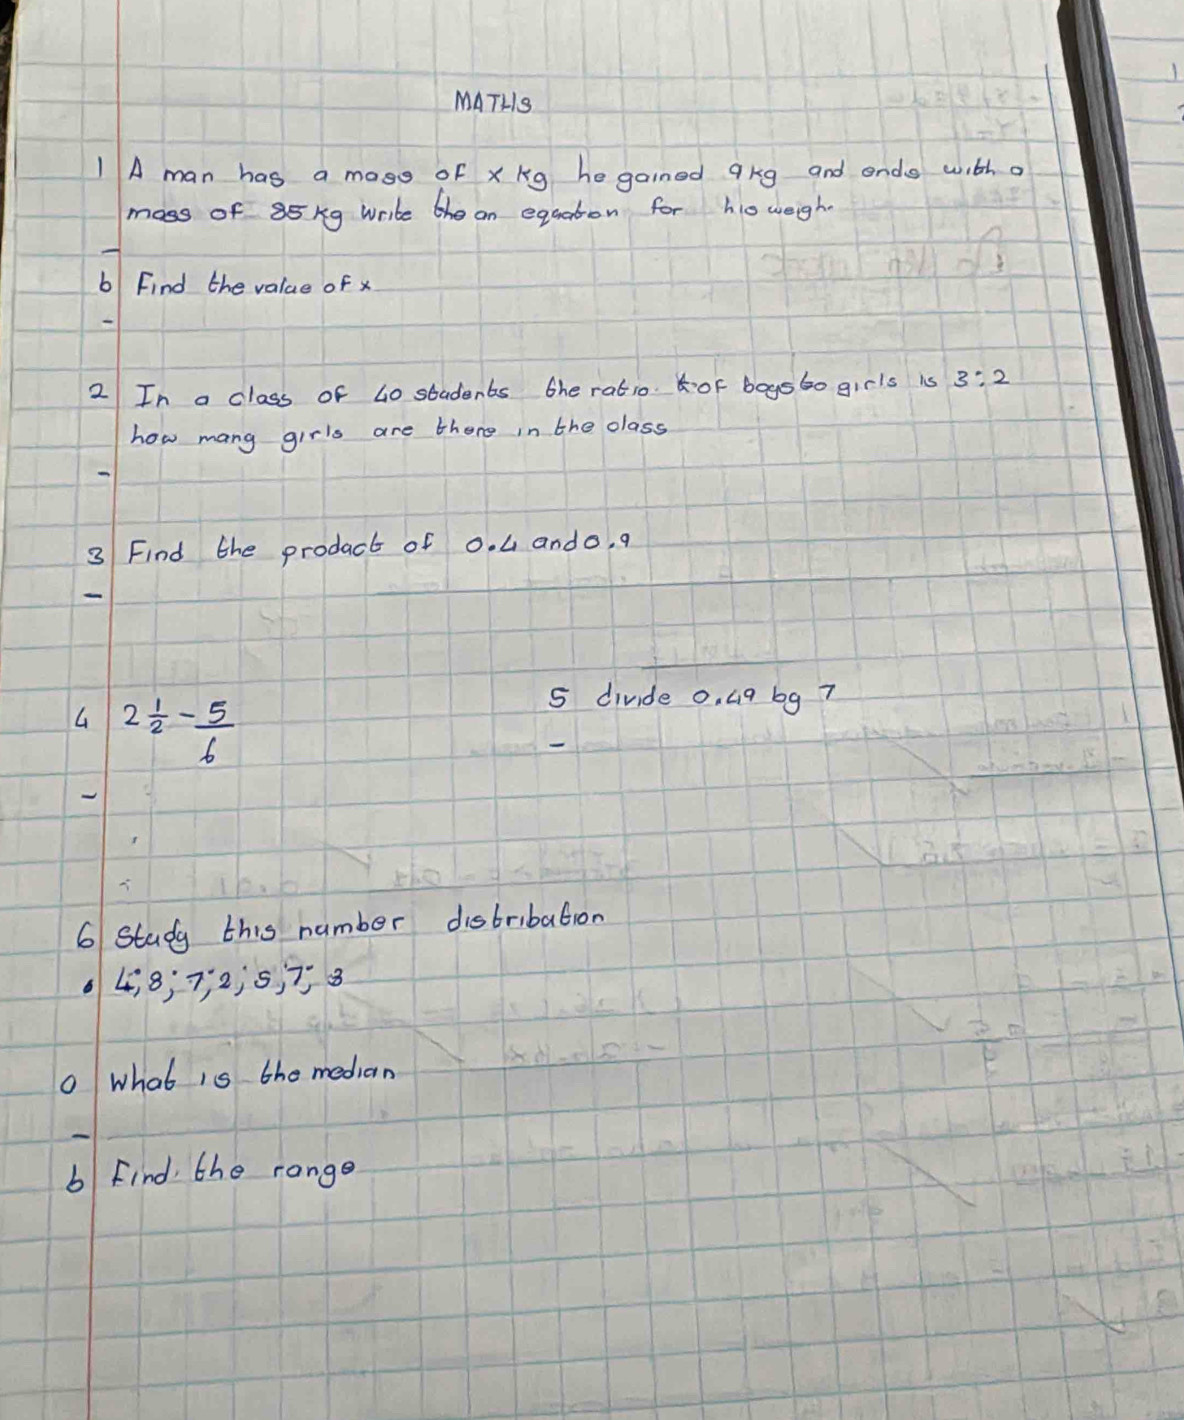 MATHS
1 A man has a mass of x kg he gained 9kg and ends with a
mass of 85 kg write the an equation for his weigh
b Find the value of x
2 In a class of 40 students the ratio of boys to girls is 3:2
how many girls are there in the class
3 Find the product of 0.4 and 0.9
4 2 1/2 - 5/6
5 divide 0.49 by 7
6 study this number distribution
4; 8; 7; 2; 5; 7; 3
a what is the median
b Find the range